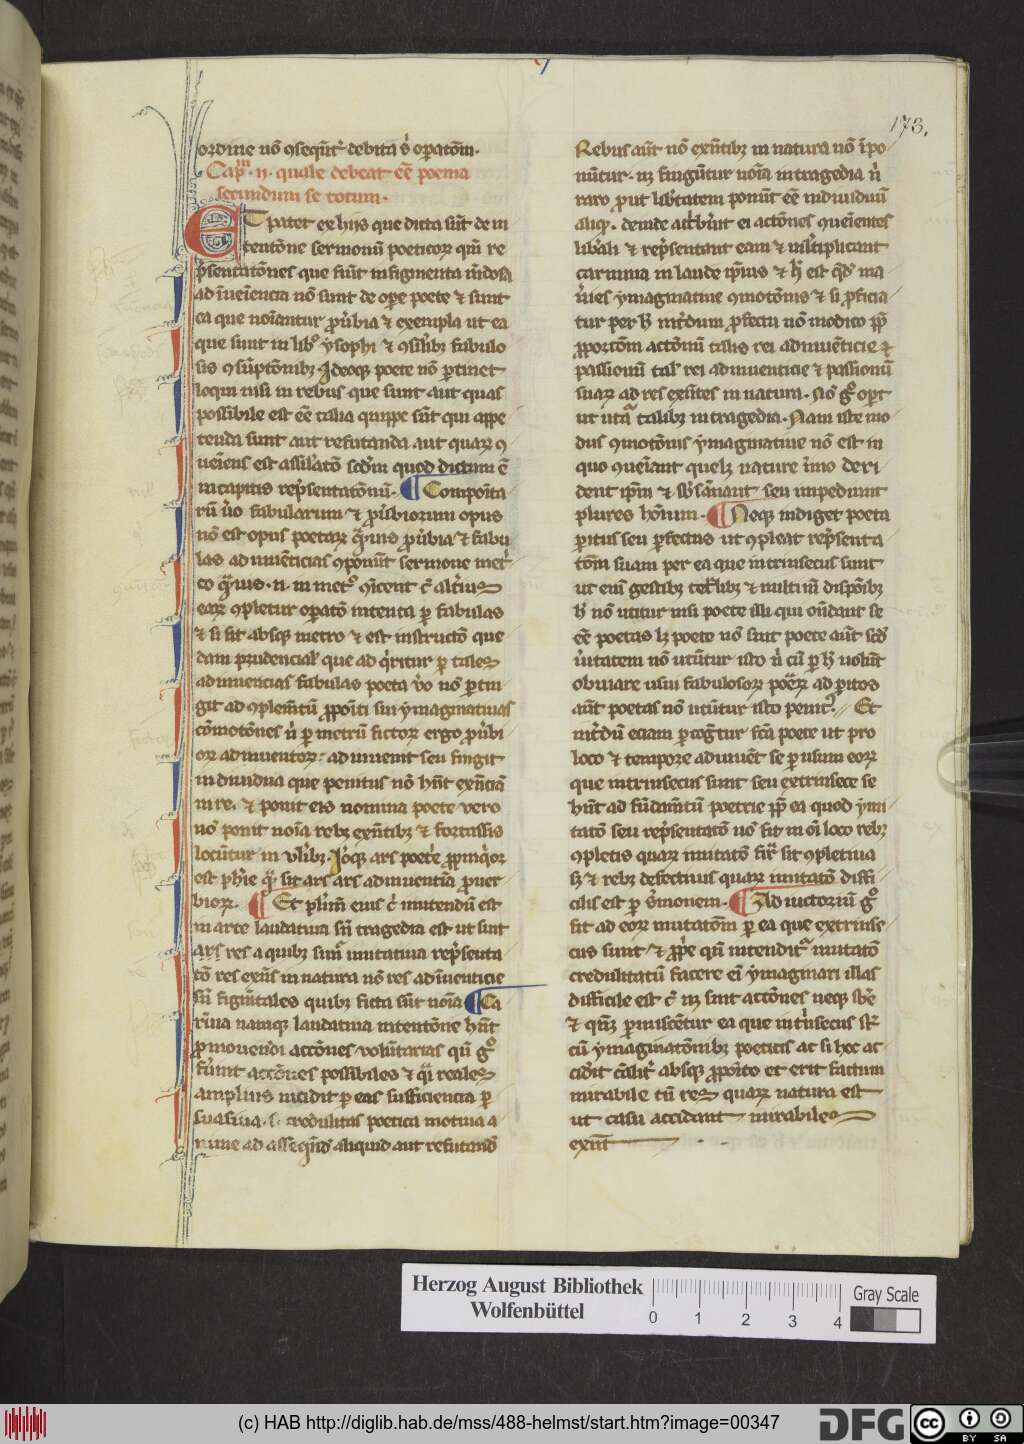 173.
ordine nō ꝯseqūt᷑ debita s᷑ op̄atōm.
Cap̄m. ii. quale debeat eē poema
secundum se totum.
ET patet ex hiis que dicta sūt de in
tentōne sermonū poeticoꝝ qm̄ re
p̄sentatōnes que fiūt in figmenta
ad īueiencia nō sunt de oꝑe poete ⁊ sunt
ea que noīantur ꝓūbia ⁊ exempla ut ea
que sunt in libº ysophi ⁊ ꝯsilībꝫ fabulo
sis ꝯsūptōnibꝫ Ideoqꝫ poete nō ꝑtinet
loqui nisi in rebus que sunt aut quas
possibile est eē talia quippe sūt qui appe
tenda sunt aut refutanda aut quaꝝ ꝯ
ueīens est assilatō scd̄m quod dictum ē
in capitis rep̄sentatōnū. ¶ Compoīta
rū ūo fabularum ⁊ ꝓūbiorum opus
nō est opus poetaꝝ q̄uis ꝓūbia ⁊ fabu
las ad inuēticias ꝯponūt sermone met᷑
co
eaꝝ ꝯpletur op̄atō intenta ꝑ fabulas
⁊ si sit absqꝫ metro ⁊ est instructō que
dam prudencial᷑ que ad q̄ritur ꝑ tales
adinuencias fabulas poeta ūo nō ꝑtin
git ad ꝯplem̄tū ꝓpoīti sui ymaginatiuas
cōmotōnes n̄ ꝑ metrū fictoꝝ ergo ꝓūbi
oꝝ adinuentoꝝ adinuenit seu fingit
indiuidua que penitus nō hn̄t exn̄ciā
in re. ⁊ ponit eis nomina poete vero
nō ponit noīa rebꝫ exn̄tibꝫ ⁊ fortassis
locūtur in vlībꝫ. Iōqꝫ ars poet᷑e ꝓpinq̄oꝝ
est ph̄ie q̄ sit ars ars adinuentīa ꝓuer
bioꝝ. ¶ Et pl̄im̄ eius c̄ inutendū est
in arte laudatiua sm̄ tragedia est ut sint
ars res a quibꝫ sum᷑ imitatiua rep̄senta
tō res exn̄s in natura nō res adiuenticie
sm̄ figm̄tales quibꝫ ficta sūt noīa ¶ Ca
rīna namqꝫ laudatiua intentōne hn̄t
ꝓmouendi accōnes volūtarias qū gº
fūint accōnes possibiles ⁊ q̄i reales
amplius incidit ꝑ eas sufficiencia ꝑ
suasiua credulitas poetica motiua a
nime ad asseqn̄d aliquid aut refutand᷑
Rebus aūt nō exn̄tibꝫ in natura nō īpo
nūtur. nꝫ fingūtur noīa in tragedia n̄
raro ꝓut lib᷑tatem ponūt eē indiuiduū
aliqꝫ. deinde at᷑būt ei actōnes ꝯueīentes
libāli ⁊ rep̄sentant eam ⁊ mltiplicant
carmina in laude ip̄ius ⁊ h̄ est qd̄ ma
nies ymaginatiue ꝯmotōnis ⁊ si ꝓficia
tur per h̄ int᷑dum ꝓfectu nō modico ꝓp̄
ꝓportōm actōnū talis rei adinuēticie ⁊
passionū tal᷑ rei adinuenticie ⁊ passionū
suaꝝ ad res exn̄tes in natura. Nō gº oꝑt
ut ut᷑a talibꝫ in tragedia. Nam iste mo
dus ꝯmotōnis ymaginatiue nō est in
quo ꝯueīant quelꝫ nature īmo deri
dent ip̄m ⁊ sb̄sānant seu impediunt
plures hōīum. ¶ Neqꝫ indiget poeta
ꝑitus seu ꝑfectus ut ꝯpleat rep̄senta
tōm suam per ea que intrinsecus sunt
ut eni᷑ gestibꝫ
h̄ nō utitur nisi poete illi qui on̄dant se
eē poetas lꝫ poete nō sint poete aūt scd̄
ūitatem nō utūtur isto n̄ cū ꝑ h̄ uolūt
obuiare usui fabulosoꝝ ad ꝑitos
aūt poetas nō utūtur isto penit᷑. Et
int᷑dum etiam ꝑ cog̅tur sc̄a poete ut pro
loco ⁊ tempore adiuuēt se ꝑ usum eoꝝ
que intrinsecus sunt seu extrinsece se
hn̄t ad fūdam̄tū poetrie ꝓp̄ ea quod ymi
tatō seu rep̄sentatō nō fit in oī loco rebꝫ
ꝯpletis quaꝝ imitatō sit ꝯpletiua
sꝫ ⁊ rebꝫ defectiuis quaꝝ imitatō diffi
cilis est ꝑ s᷑monem. ¶ Ad iuctoriū gº
fit ad eoꝝ mutatōm ꝑ ea que extrinse
cus sunt ⁊ ꝓp̄e qn̄ intendit᷑ imitatō
credulitatū facere ei ymaginari illas
difficile est c̄ nꝫ sint actōnes neqꝫ sb̄e
⁊ qn̄qꝫ ꝑmiscētur ea que int᷑nsecus st̄
cū ymaginatōnibꝫ poeticis ac si hoc ac
cid᷑it absqꝫ ꝓpoīto et erit factum
mirabile tū res quaꝝ natura est
ut casu accidant mirabiles
exiūt
Herzog August Bibliothek
Wolfenbüttel
0 1 2 3 4
Gray Scale
(c) HAB http://diglib.hab.de/mss/488-helmst/start.htm?image=00347
DFG
cc BY SA